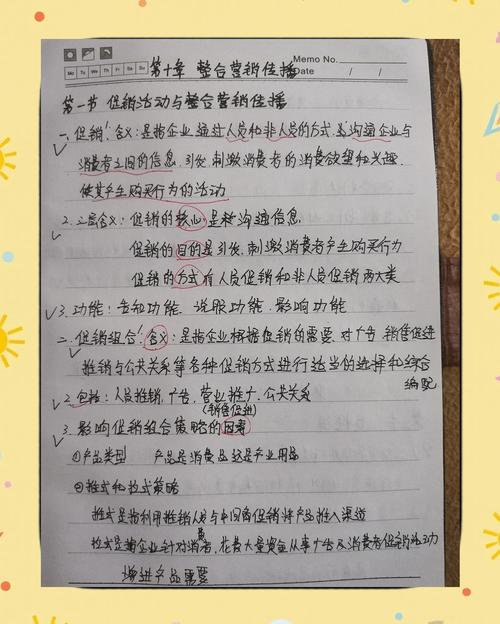 Memo No.
Mo Tu We Th Fr Sa Su
Date / /
第十章 整合营销传播
第一节 促销活动与整合营销传播
一、促销1.含义:是指企业通过人员和非人员的方式,沟通企业与
消费者之间的信息,引发、刺激消费者的消费欲望和兴趣.
使其产生购买行为的活动
2.三层含义:促销的核心是沟通信息.
促销的目的是引发、刺激消费者产生购买行为
促销的方式有人员促销和非人员促销两大类
3.功能:告知功能、说服功能、影响功能
二、促销组合1.含义:是指企业根据促销的需要,对广告、销售促进
推销与公共关系等各种促销方式进行适当的选择和综合
编配
2.包括:人员推销、广告、营业推广、公共关系
(销售促进)
3.影响促销组合策略的因素
①产品类型 产品是消费品还是产业用品
②推式和拉式策略
推式是指利用推销人员与中间商促销将产品推入渠道
拉式是指企业针对消费者,花费大量资金从事广告及消费者促销活动
增进产品需要